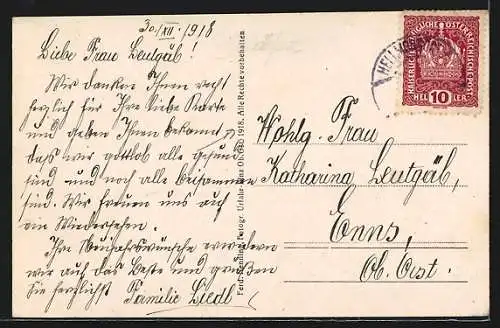 30./XII. 1918
Liebe Frau Leutgäb!
Wir danken Ihnen recht
herzlich für Ihre liebe Karte
und geben Ihnen bekannt
dass wir gottlob alle gesund
sind und noch alle beisammen
sind. Wir freuen uns auf
ein Wiedersehen.
Ihre Neujahrswünsche erwidern
wir auf das Beste und grüßen
Sie herzlichst Familie Liedl
1918. Alle Rechte vorbehalten
KAISERLICHE KÖNIGLICHE ÖSTERREICHISCHE POST
HELLER 10
Wohlg. Frau
Katharina Leutgäb,
Enns,
Ob. Öst.